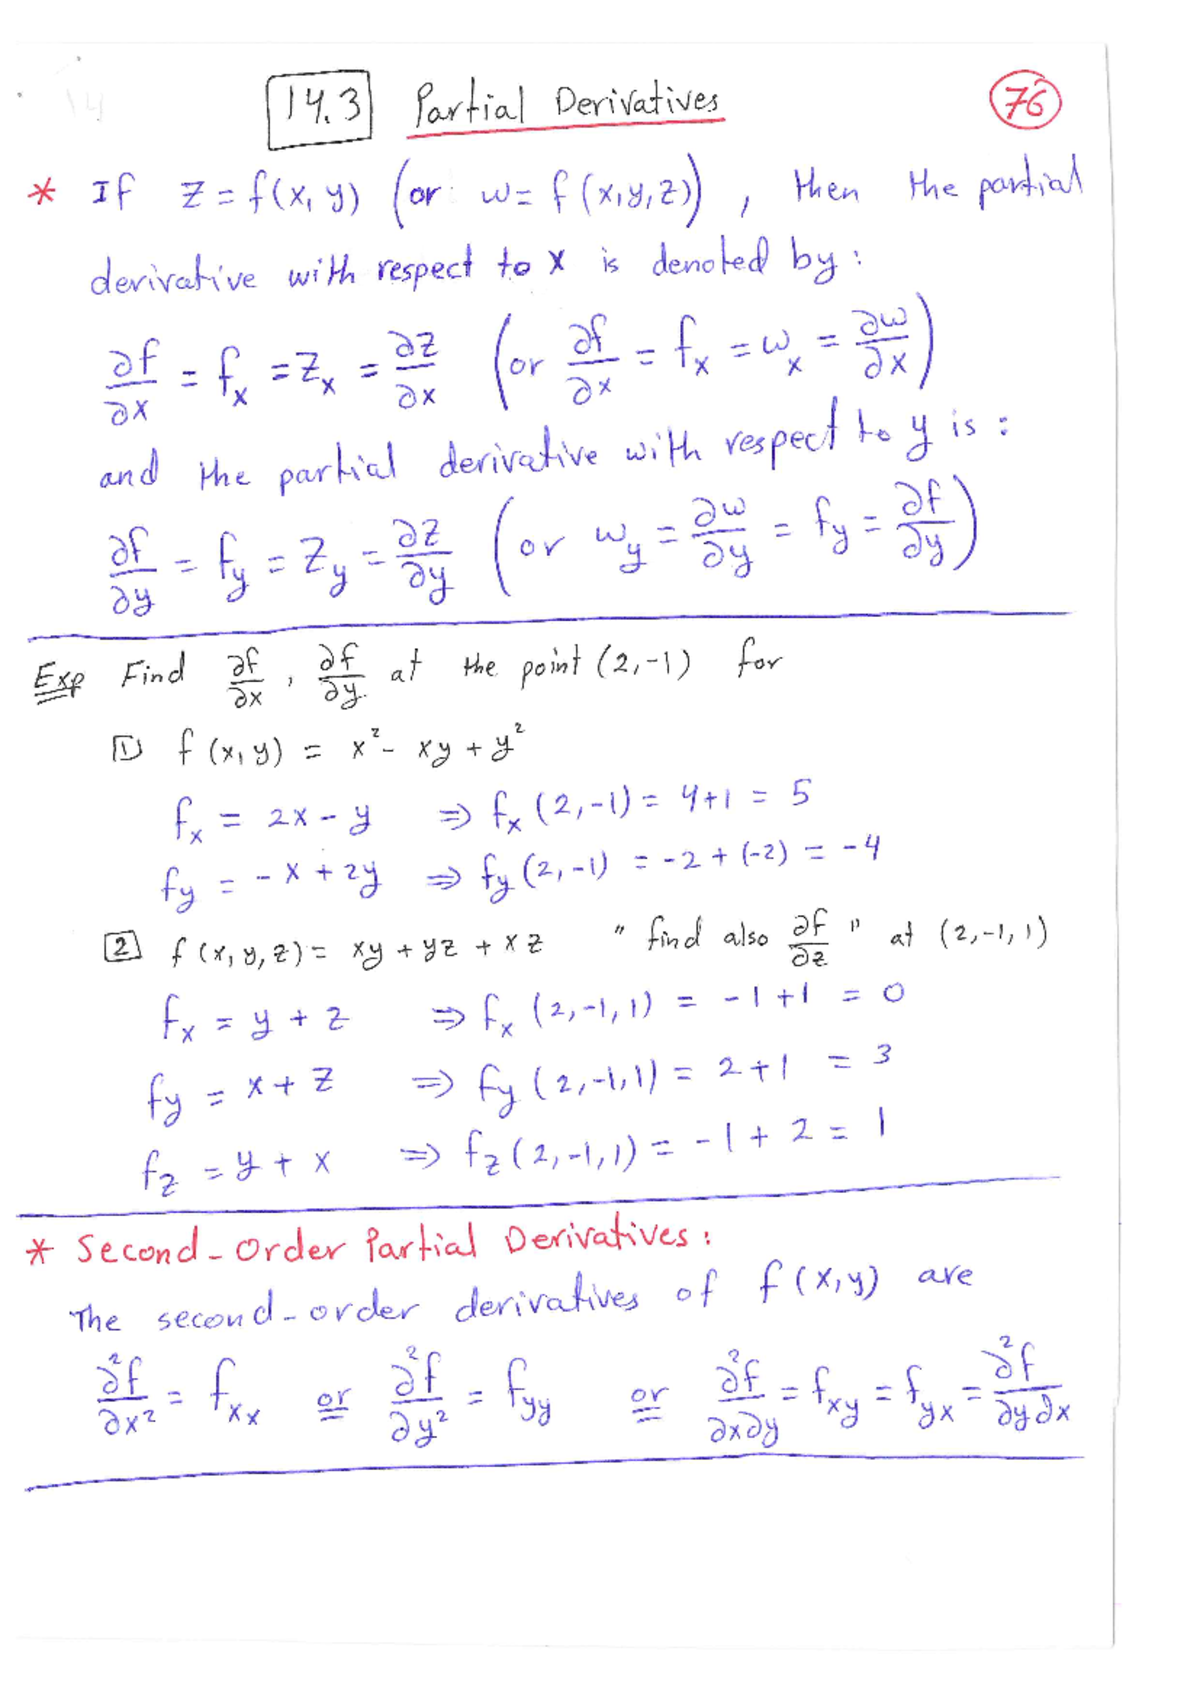 14.3 Partial Derivatives 76
* If z = f(x, y) (or w = f(x,y,z)), then the partial
derivative with respect to x is denoted by:
∂f/∂x = fₓ = zₓ = ∂z/∂x (or ∂f/∂x = fₓ = wₓ = ∂w/∂x)
and the partial derivative with respect to y is:
∂f/∂y = f_y = z_y = ∂z/∂y (or w_y = ∂w/∂y = f_y = ∂f/∂y)
Exp Find ∂f/∂x, ∂f/∂y at the point (2,-1) for
1 f(x, y) = x² - xy + y²
fₓ = 2x - y ⇒ fₓ(2,-1) = 4+1 = 5
f_y = -x + 2y ⇒ f_y(2,-1) = -2 + (-2) = -4
2 f(x, y, z) = xy + yz + xz " find also ∂f/∂z " at (2,-1,1)
fₓ = y + z ⇒ fₓ(2,-1,1) = -1+1 = 0
f_y = x + z ⇒ f_y(2,-1,1) = 2+1 = 3
f_z = y + x ⇒ f_z(2,-1,1) = -1 + 2 = 1
* Second-Order Partial Derivatives:
The second-order derivatives of f(x,y) are
∂²f/∂x² = fₓₓ or ∂²f/∂y² = f_yy or ∂²f/∂x∂y = f_xy = f_yx = ∂²f/∂y∂x